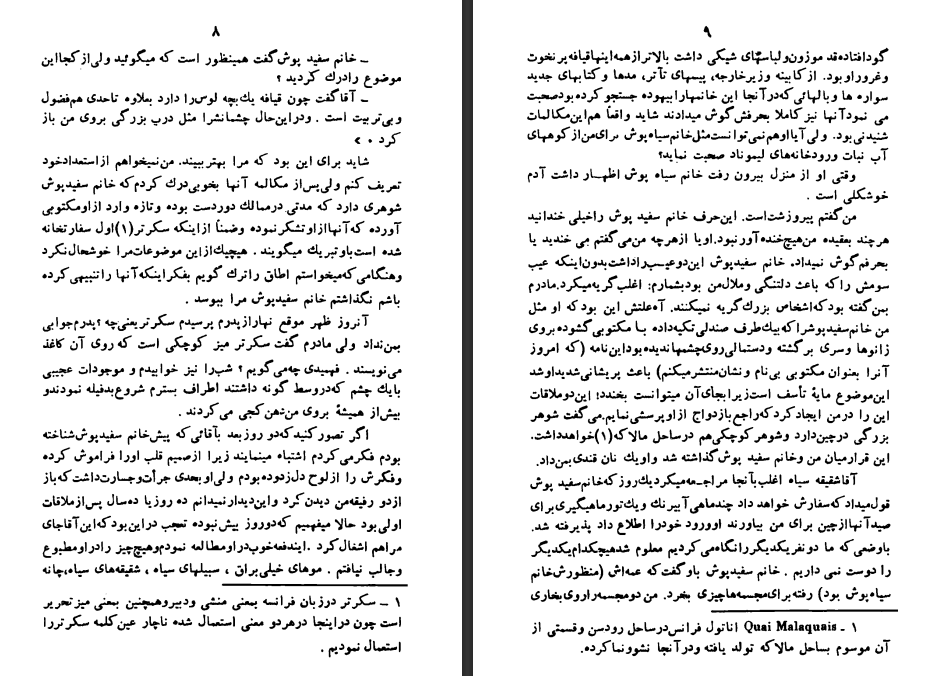 ۸
ـ خانم سفید پوش گفت همینطور است که میگوئید ولی از کجا این
موضوع را درك کردید ؟
ـ آقا گفت چون قیافه یك بچه لوس را دارد بعلاوه تاحدی هم فضول
و بی تربیت است . و در این حال چشمانش را مثل درب بزرگی بروی من باز
کرد ۰ »
شاید برای این بود که مرا بهتر ببیند. من نمیخواهم از استعداد خود
تعریف کنم ولی پس از مکالمه آنها بخوبی درك کردم که خانم سفید پوش
شوهری دارد که مدتی در ممالك دور دست بوده و تازه وارد از او مکتوبی
آورده که آنها از او تشکر نموده و ضمناً از اینکه سکرتر (۱) اول سفارتخانه
شده است باو تبریك میگویند . هیچیك از این موضوعات مرا خوشحال نکرد
و هنگامی که میخواستم اطاق را ترك گویم بفکر اینکه آنها را تنبیهی کرده
باشم نگذاشتم خانم سفید پوش مرا ببوسد .
آنروز ظهر موقع نهار از پدرم پرسیدم سکرتر یعنی چه ؟ پدرم جوابی
بمن نداد ولی مادرم گفت سکرتر میز کوچکی است که روی آن کاغذ
می نویسند . فهمیدی چه می گویم ؟ شب را نیز خوابیدم و موجودات عجیبی
با یك چشم که در وسط گونه داشتند اطراف بسترم شروع بدفیله نمودند و
بیش از همیشهٔ بروی من دهن کجی می کردند .
اگر تصور کنید که دو روز بعد با آقائی که پیش خانم سفید پوش شناخته
بودم فکر می کردم اشتباه مینمایند زیرا از صمیم قلب او را فراموش کرده
و فکرش را از لوح دل زدوده بودم ولی او بعدی جرأت و جسارت داشت که باز
از دو رفیقه من دیدن کرد و این دیدار نمیدانم ده روز یا ده سال پس از ملاقات
اولی بود حالا میفهمیم که دو روز بیش نبوده تعجب در این بود که این آقا جای
مرا هم اشغال کرد . ایندفعه خوب در او مطالعه نمودم و هیچ چیز را در او مطبوع
و جالب نیافتم . موهای خیلی براق ، سبیلهای سیاه ، شقیقه های سیاه، چانه
۱ ـ سکرتر در زبان فرانسه بمعنی منشی و دبیر و همچنین بمعنی میز تحریر
است چون در اینجا در هر دو معنی استعمال شده ناچار عین کلمه سکرتر را
استعمال نمودیم .
۹
گود افتاده قد موزون و لباسهای شیکی داشت بالاتر از همه اینها قیافه پر نخوت
و غرور او بود. از کابینه وزیر خارجه، پیسهای تآتر، مدها و کتابهای جدید
سواره ها و بالهائی که در آنجا این خانمها را بیهوده جستجو کرده بود صحبت
می نمود آنها نیز کاملا بحرفش گوش میدادند شاید واقعاً هم این مکالمات
شنیدنی بود. ولی آیا او هم نمی توانست مثل خانم سیاه پوش برای من از کوههای
آب نبات و رودخانه های لیموناد صحبت نماید؟
وقتی او از منزل بیرون رفت خانم سیاه پوش اظهار داشت آدم
خوشکلی است .
من گفتم پیر و زشت است. این حرف خانم سفید پوش را خیلی خندانید
هر چند بعقیده من هیچ خنده آور نبود. او یا از هر چه من می گفتم می خندید یا
بحرفم گوش نمیداد. خانم سفید پوش این دو عیب را داشت بدون اینکه عیب
سومش را که باعث دلتنگی و ملال من بود بشمارم: اغلب گریه میکرد. مادرم
بمن گفته بود که اشخاص بزرگ گریه نمیکنند. آه علتش این بود که او مثل
من خانم سفید پوش را که بیك طرف صندلی تکیه داده با مکتوبی گشوده بروی
زانوها و سری برگشته و دستمالی روی چشمها ندیده بود این نامه (که امروز
آنرا بعنوان مکتوبی بی نام و نشان منتشر میکنم) باعث پریشانی شدید او شد
این موضوع مایهٔ تأسف است زیرا بجای آن میتوانست بخندد! این دو ملاقات
این را در من ایجاد کرد که راجع بازدواج از او پرسشی نمایم. می گفت شوهر
بزرگی در چین دارد و شوهر کوچکی هم در ساحل مالاکه (۱) خواهد داشت.
این قرار میان من و خانم سفید پوش گذاشته شد و او یك نان قندی بمن داد.
آقا شقیقه سیاه اغلب بآنجا مراجعه میکرد یك روز که خانم سفید پوش
قول میداد که سفارش خواهد داد چند ماهی آبیرنك و یك تور ماهیگیری برای
صید آنها از چین برای من بیاورند او ورود خود را اطلاع داد پذیرفته شد.
با وضعی که ما دو نفر یکدیگر را نگاه می کردیم معلوم شد هیچکدام یکدیگر
را دوست نمی داریم . خانم سفید پوش باو گفت که عمه اش (منظورش خانم
سیاه پوش بود) رفته برای مجسمه ها چیزی بخرد. من دو مجسمه را روی بخاری
۱ ـ Quai Malaquais اناتول فرانس در ساحل رود سن و قسمتی از
آن موسوم بساحل مالاکه تولد یافته و در آنجا نشو و نما کرده.